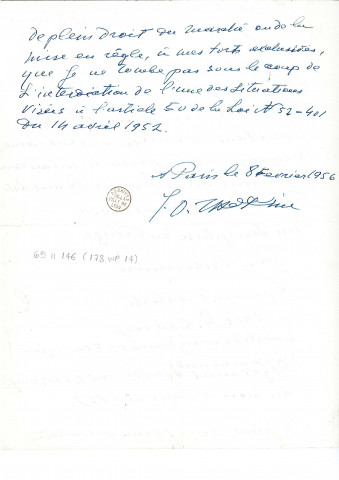 de plein droit du marché ou de la
mise en règle, à mes torts exclusifs,
que je ne tombe pas sous le coup de
L'interdiction de l'une des Situations
Visées à l'article 50 de la Loi N° 52-401
du 14 avril 1952.
A Paris le 8 Février 1956
69 II 146 (178 WP 14)